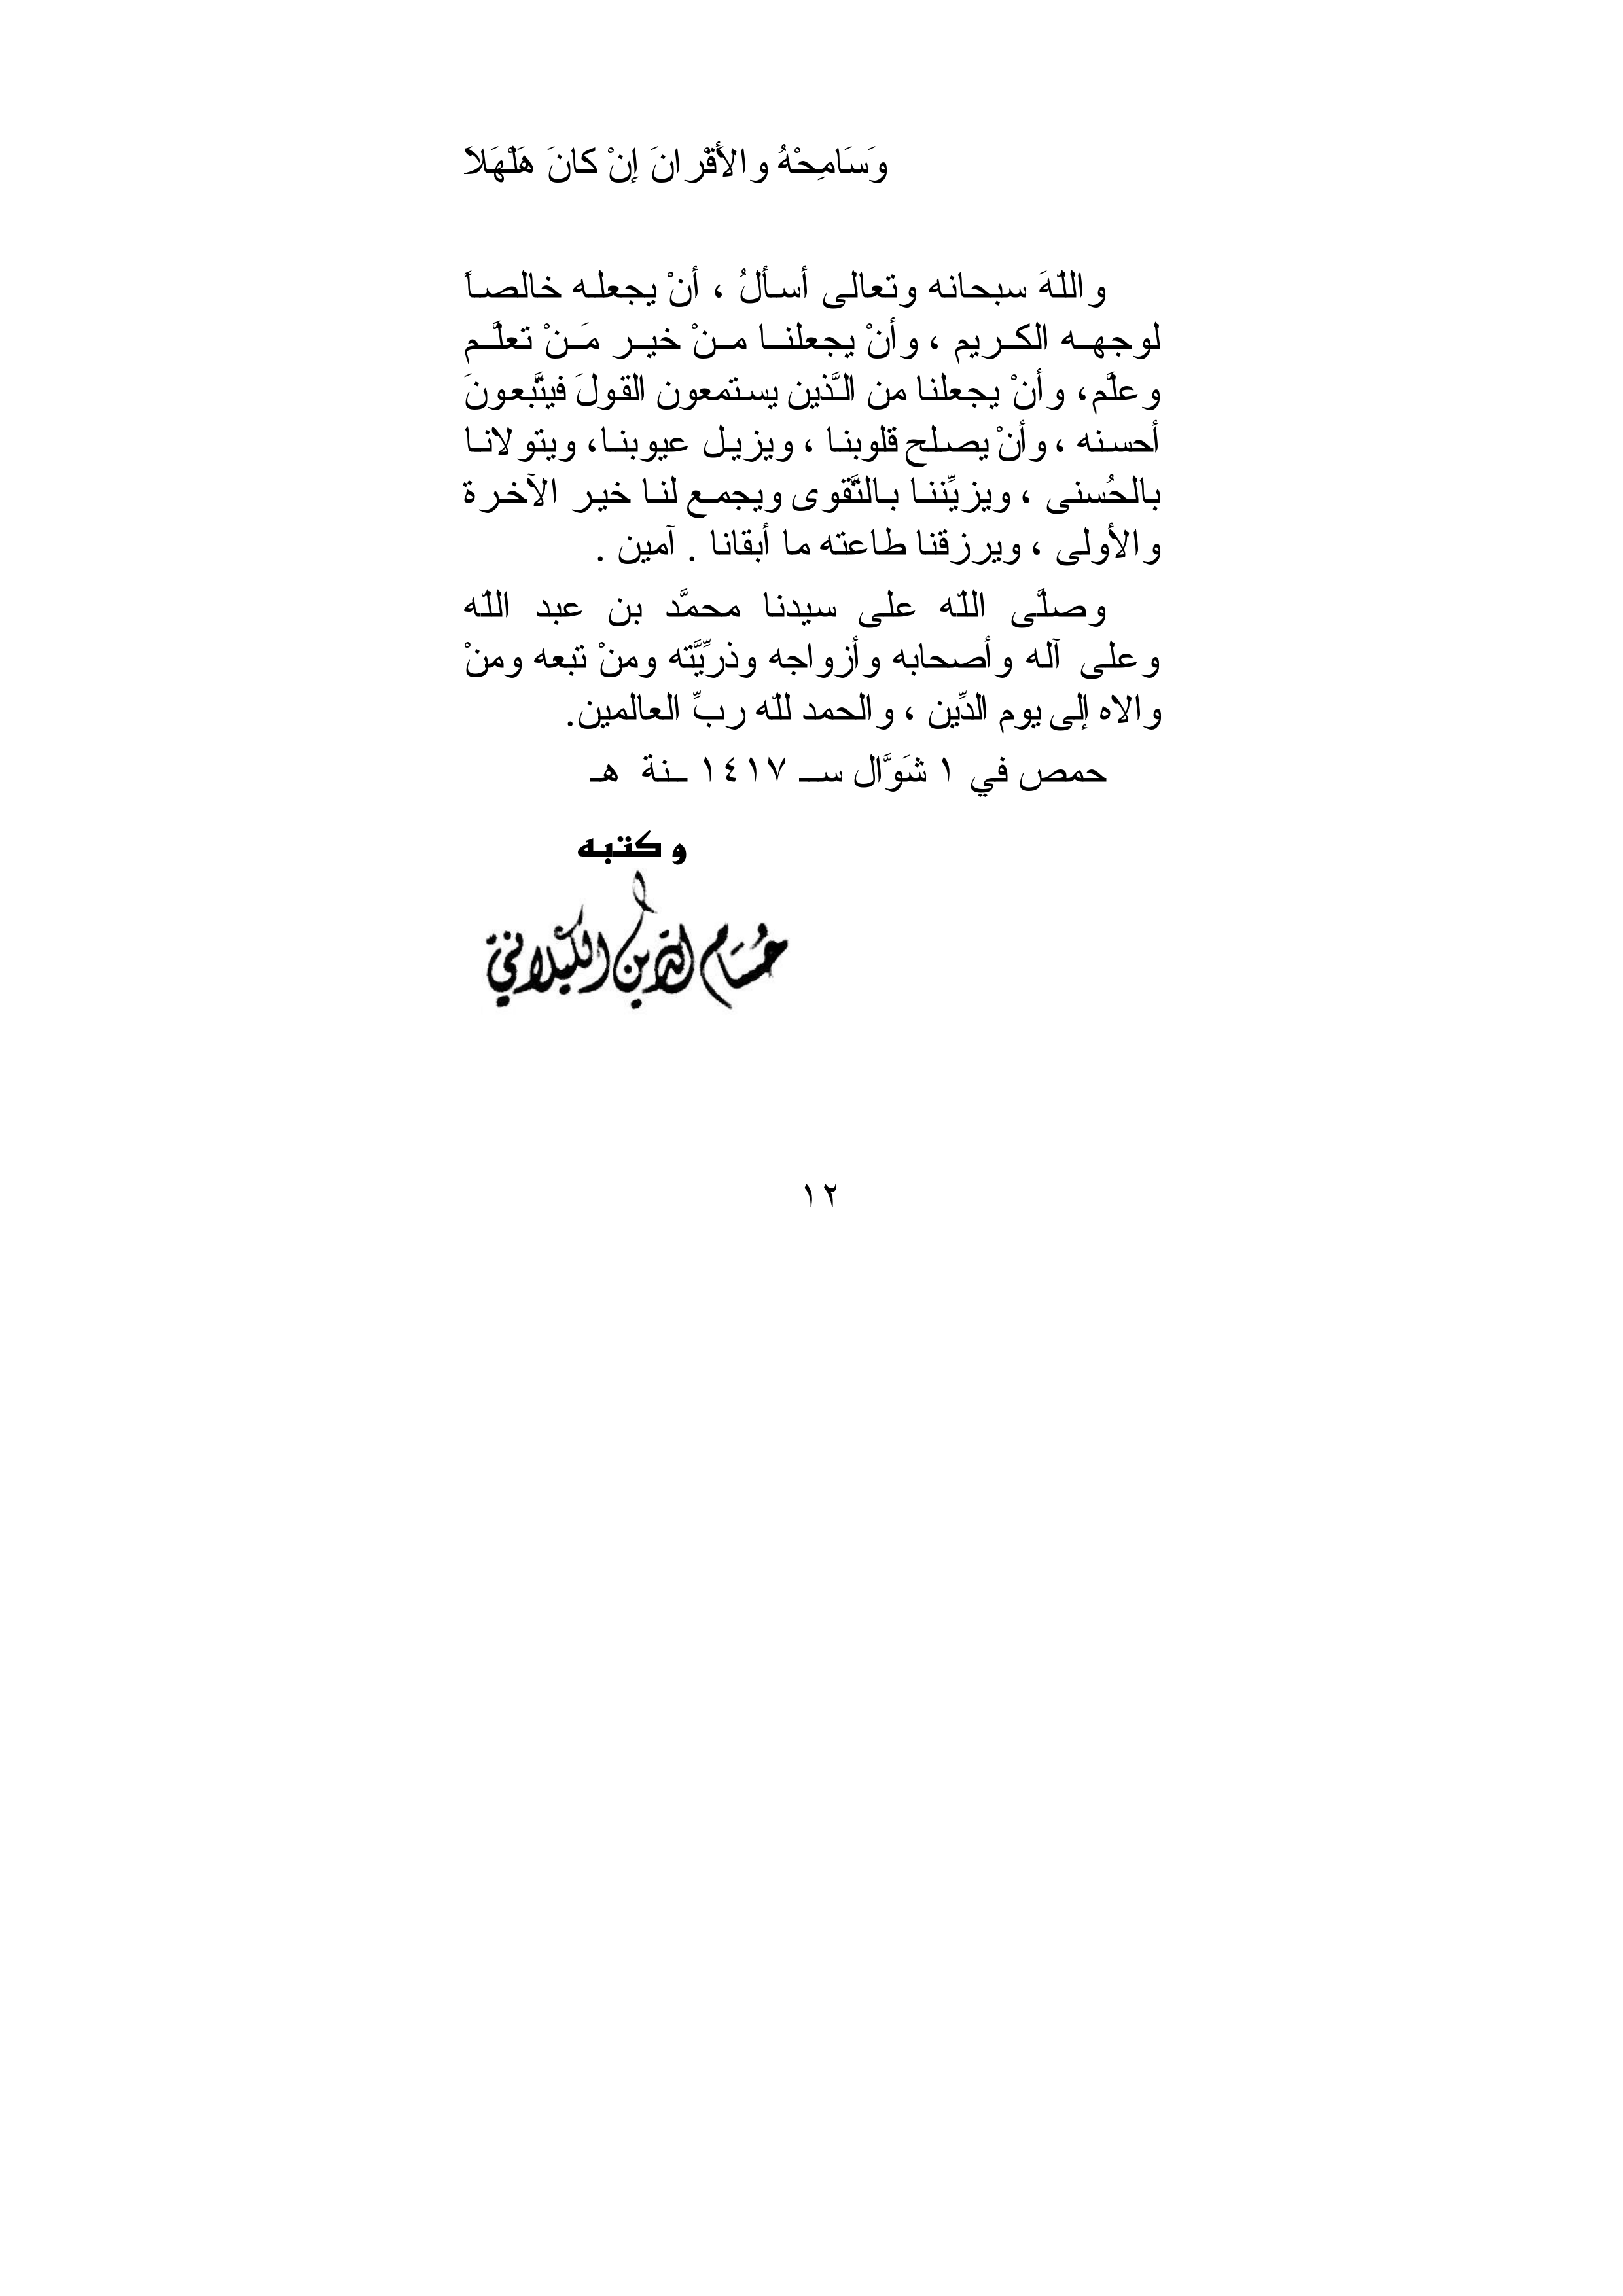 وَسَامِحْهُ والأَقْرانَ إِنْ كانَ هَلْهَلاَ
واللّهَ سبحانه وتعالى أسألُ ، أنْ يجعله خالصاً
لوجهه الكريم ، وأنْ يجعلنا منْ خير مَنْ تعلَّم
وعلَّم، وأنْ يجعلنا من الَّذين يستمعون القولَ فيتَّبعونَ
أحسنه ، وأنْ يصلح قلوبنا ، ويزيل عيوبنا، ويتولانا
بالحُسنى ، ويزيِّننا بالتَّقوى ويجمع لنا خير الآخرة
والأولى ، ويرزقنا طاعته ما أبقانا . آمين .
وصلَّى اللّه على سيدنا محمَّد بن عبد اللّه
وعلى آله وأصحابه وأزواجه وذرِّيَّته ومنْ تبعه ومنْ
والاه إلى يوم الدِّين ، والحمد للّه ربِّ العالمين.
حمص في ١ شَوَّال سـ ١٤١٧ ـنة هـ
وكتبه
حُسَام الدين الكيلاني
١٢